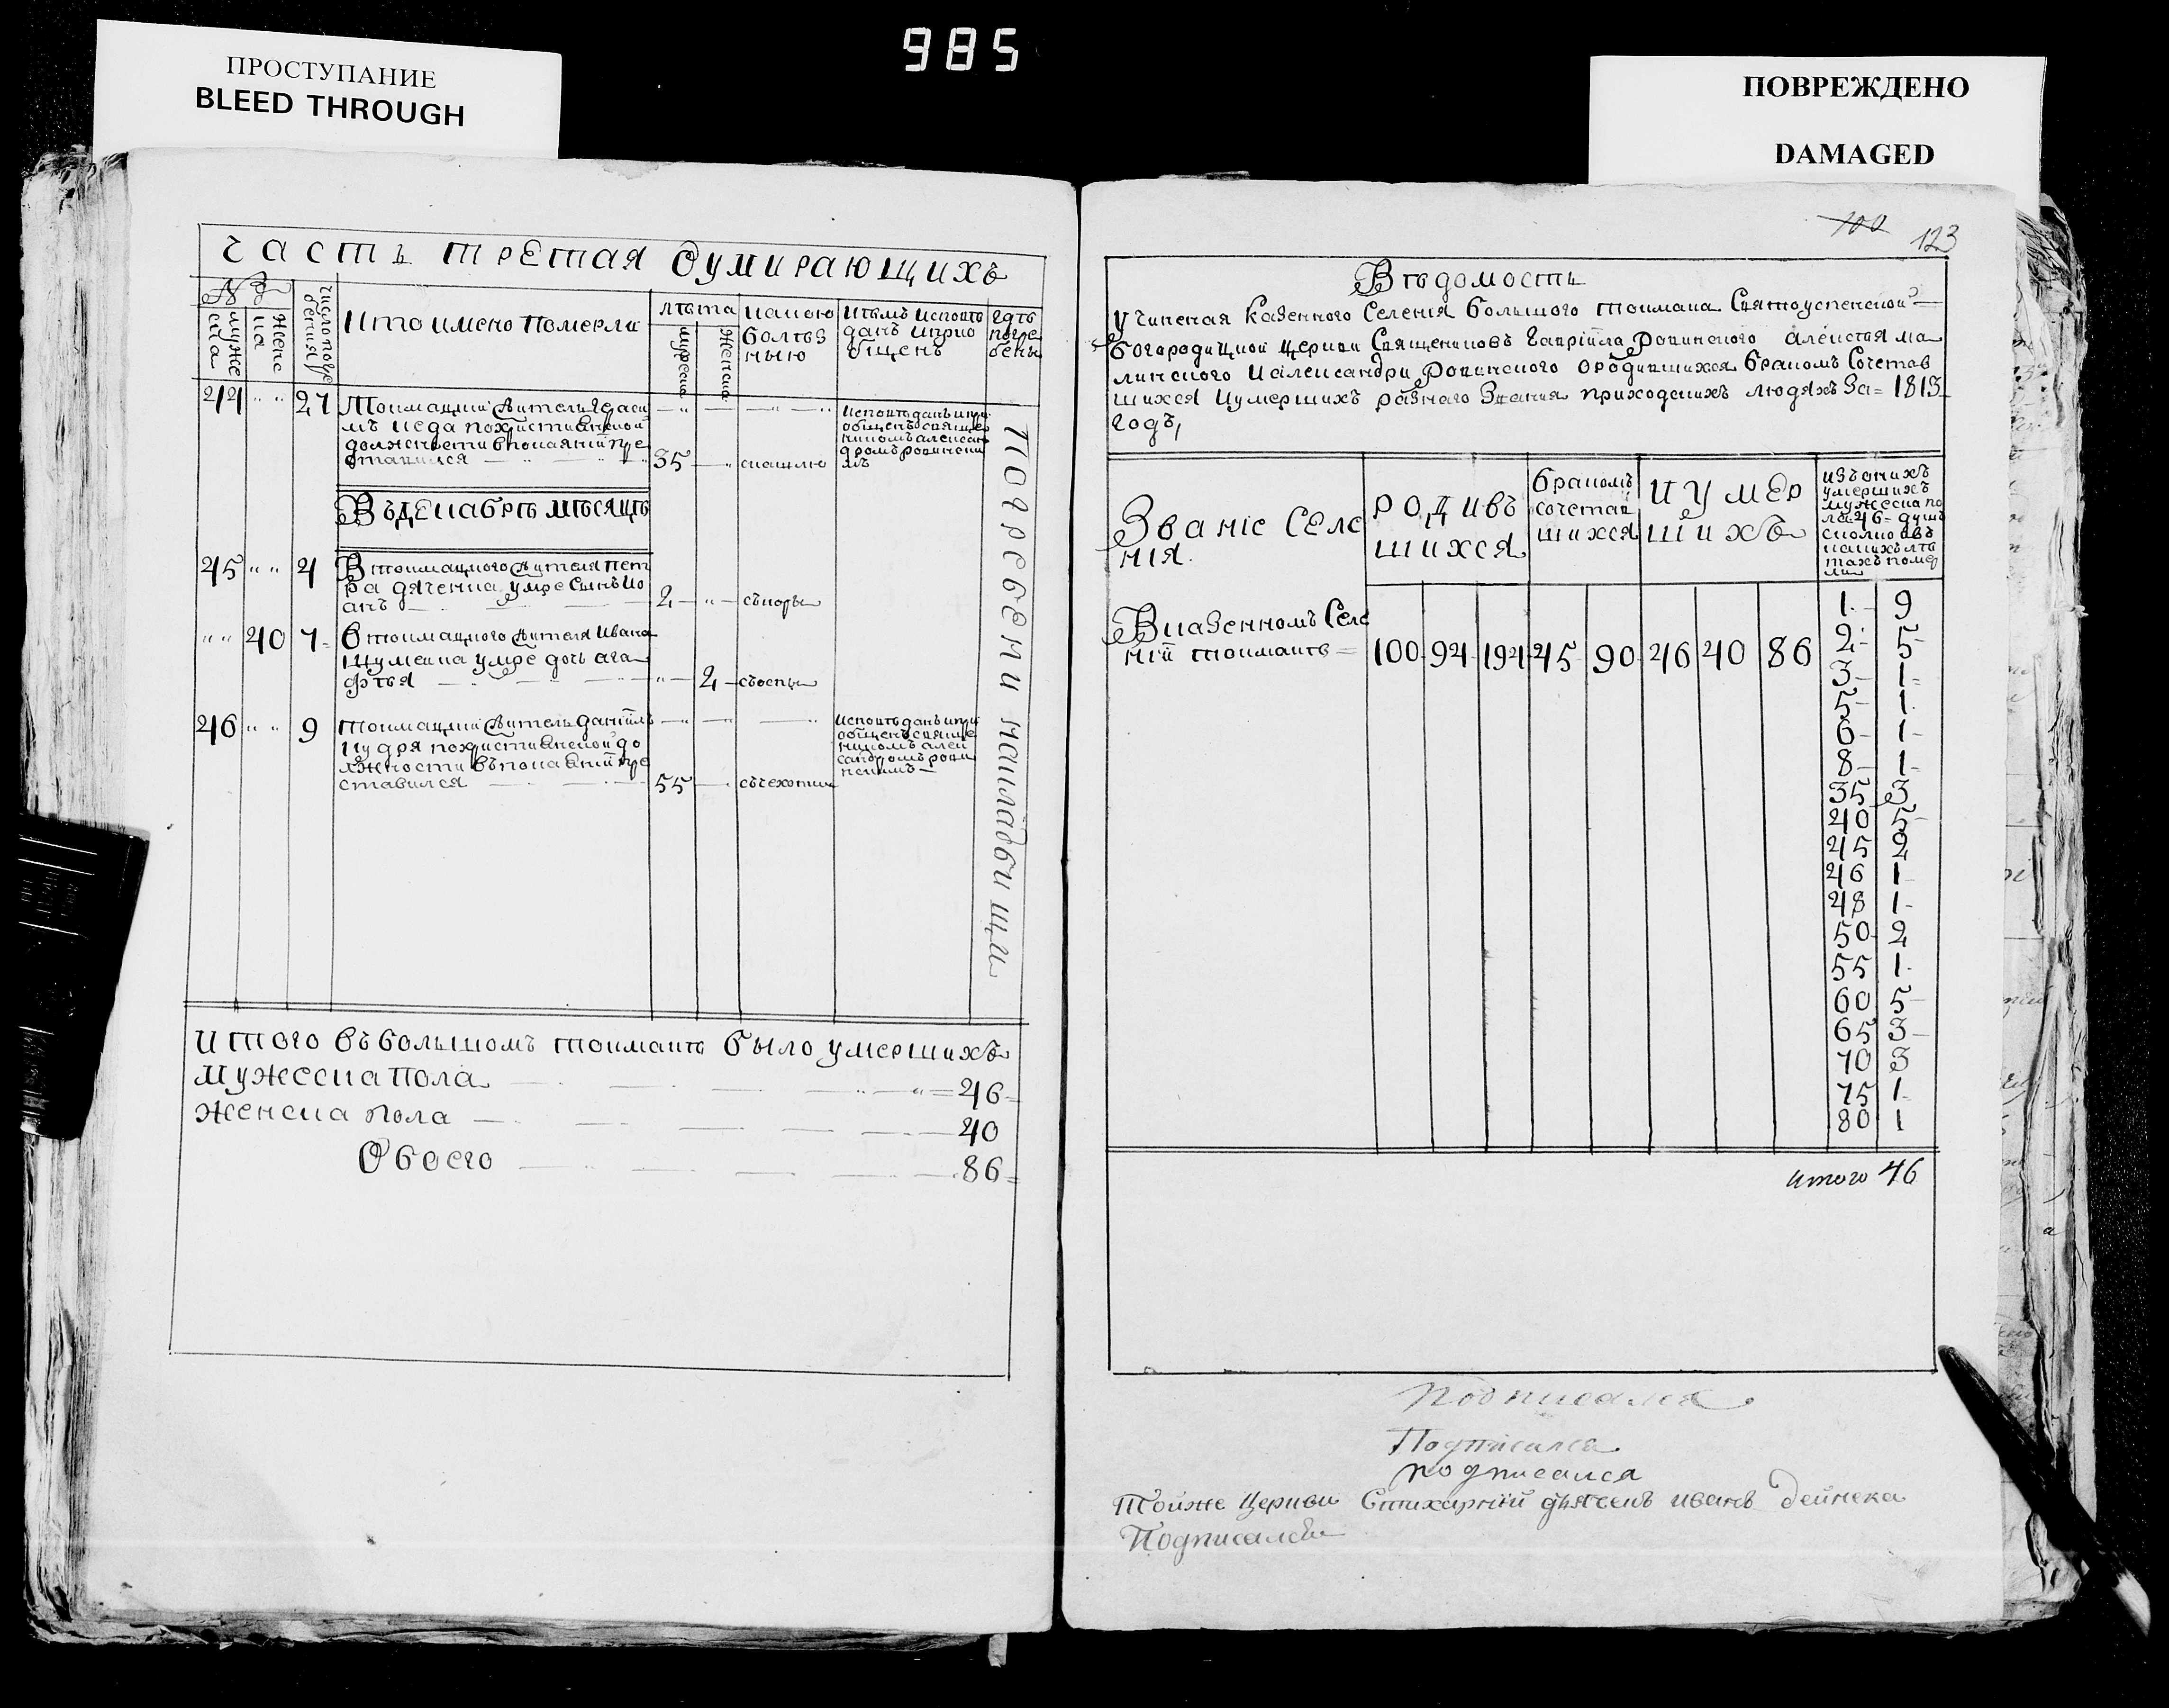 985
ПРОСТУПАНИЕ
BLEED THROUGH
ПОВРЕЖДЕНО
DAMAGED
часть третая Оумирающихъ
№
мужеска
женска
число погребения
кто имено померли
лѣта
мужеска
женска
какою болѣзнью
кѣмъ исповѣданъ и приобщенъ
гдѣ погребены
44 " " 27 Токмацкий житель
по християнской
должности в покаянии пре
ставился 35 кашлю
исповѣданъ и при
общенъ свяще
никомъ алексан
дромъ ровински
мъ
Въ декабрѣ мѣсяцѣ
45 " " 4 В токмацкого жителя пет
ра дяченка умре сынъ ио
анъ 2 съкоры
" " 40 7 В токмацкого жителя ивана
шумейка умре дочь ага
фѣя 2 съоспы
46 " " 9 токмацкий житель даниилъ
кудря по християнской до
лжности въ покаянии пре
ставился 55 съчехотки
исповѣданъ и при
общенъ свяще
никомъ алек
сандромъ рови
нскимъ
погребены на кладбищи
Итого въ большомъ токмакѣ было умершихъ
мужеска пола 46
женска пола 40
Обоего 86
100 123
Вѣдомость
учиненая казенного селения большого токмака святоуспенской
богородицкой церкви священиковъ гавриила ровинского алексѣя ма
линского и александра ровинского о родившихся бракомъ сочетав
шихся и умершихъ разнаго звания приходскихъ людяхъ за 1813
годъ,
Званіе селе
нія.
родив
шихся
бракомъ
сочетав
шихся
и умер
шихъ
изъ онихъ
умершихъ
мужеска по
ла 46 душъ
сколко и въ
какихъ лѣ
тахъ помер
ли
В казенномъ селе
нии токмакѣ 100 94 194 45 90 46 40 86
1 9
2 5
3 1
5 1
6 1
8 1
35 3
40 5
45 2
46 1
48 1
50 2
55 1
60 5
65 3
70 3
75 1
80 1
итого 46
подписался
Подписался
подписался
Тойже церкви Стихарній дьяченъ иванъ дейнека
Подписался